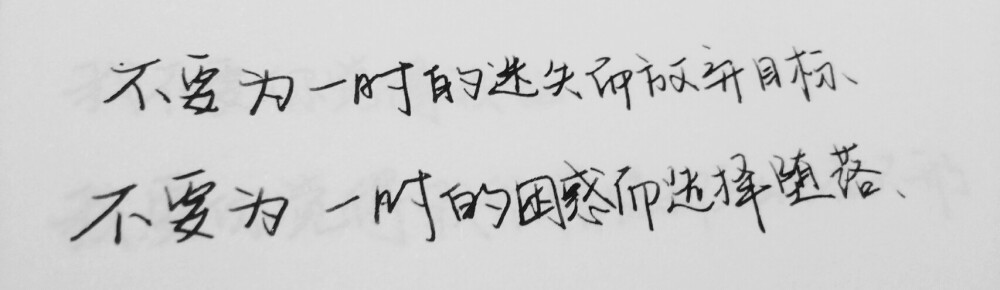 不要为一时的迷失而放弃目标、
不要为一时的困惑而选择堕落、